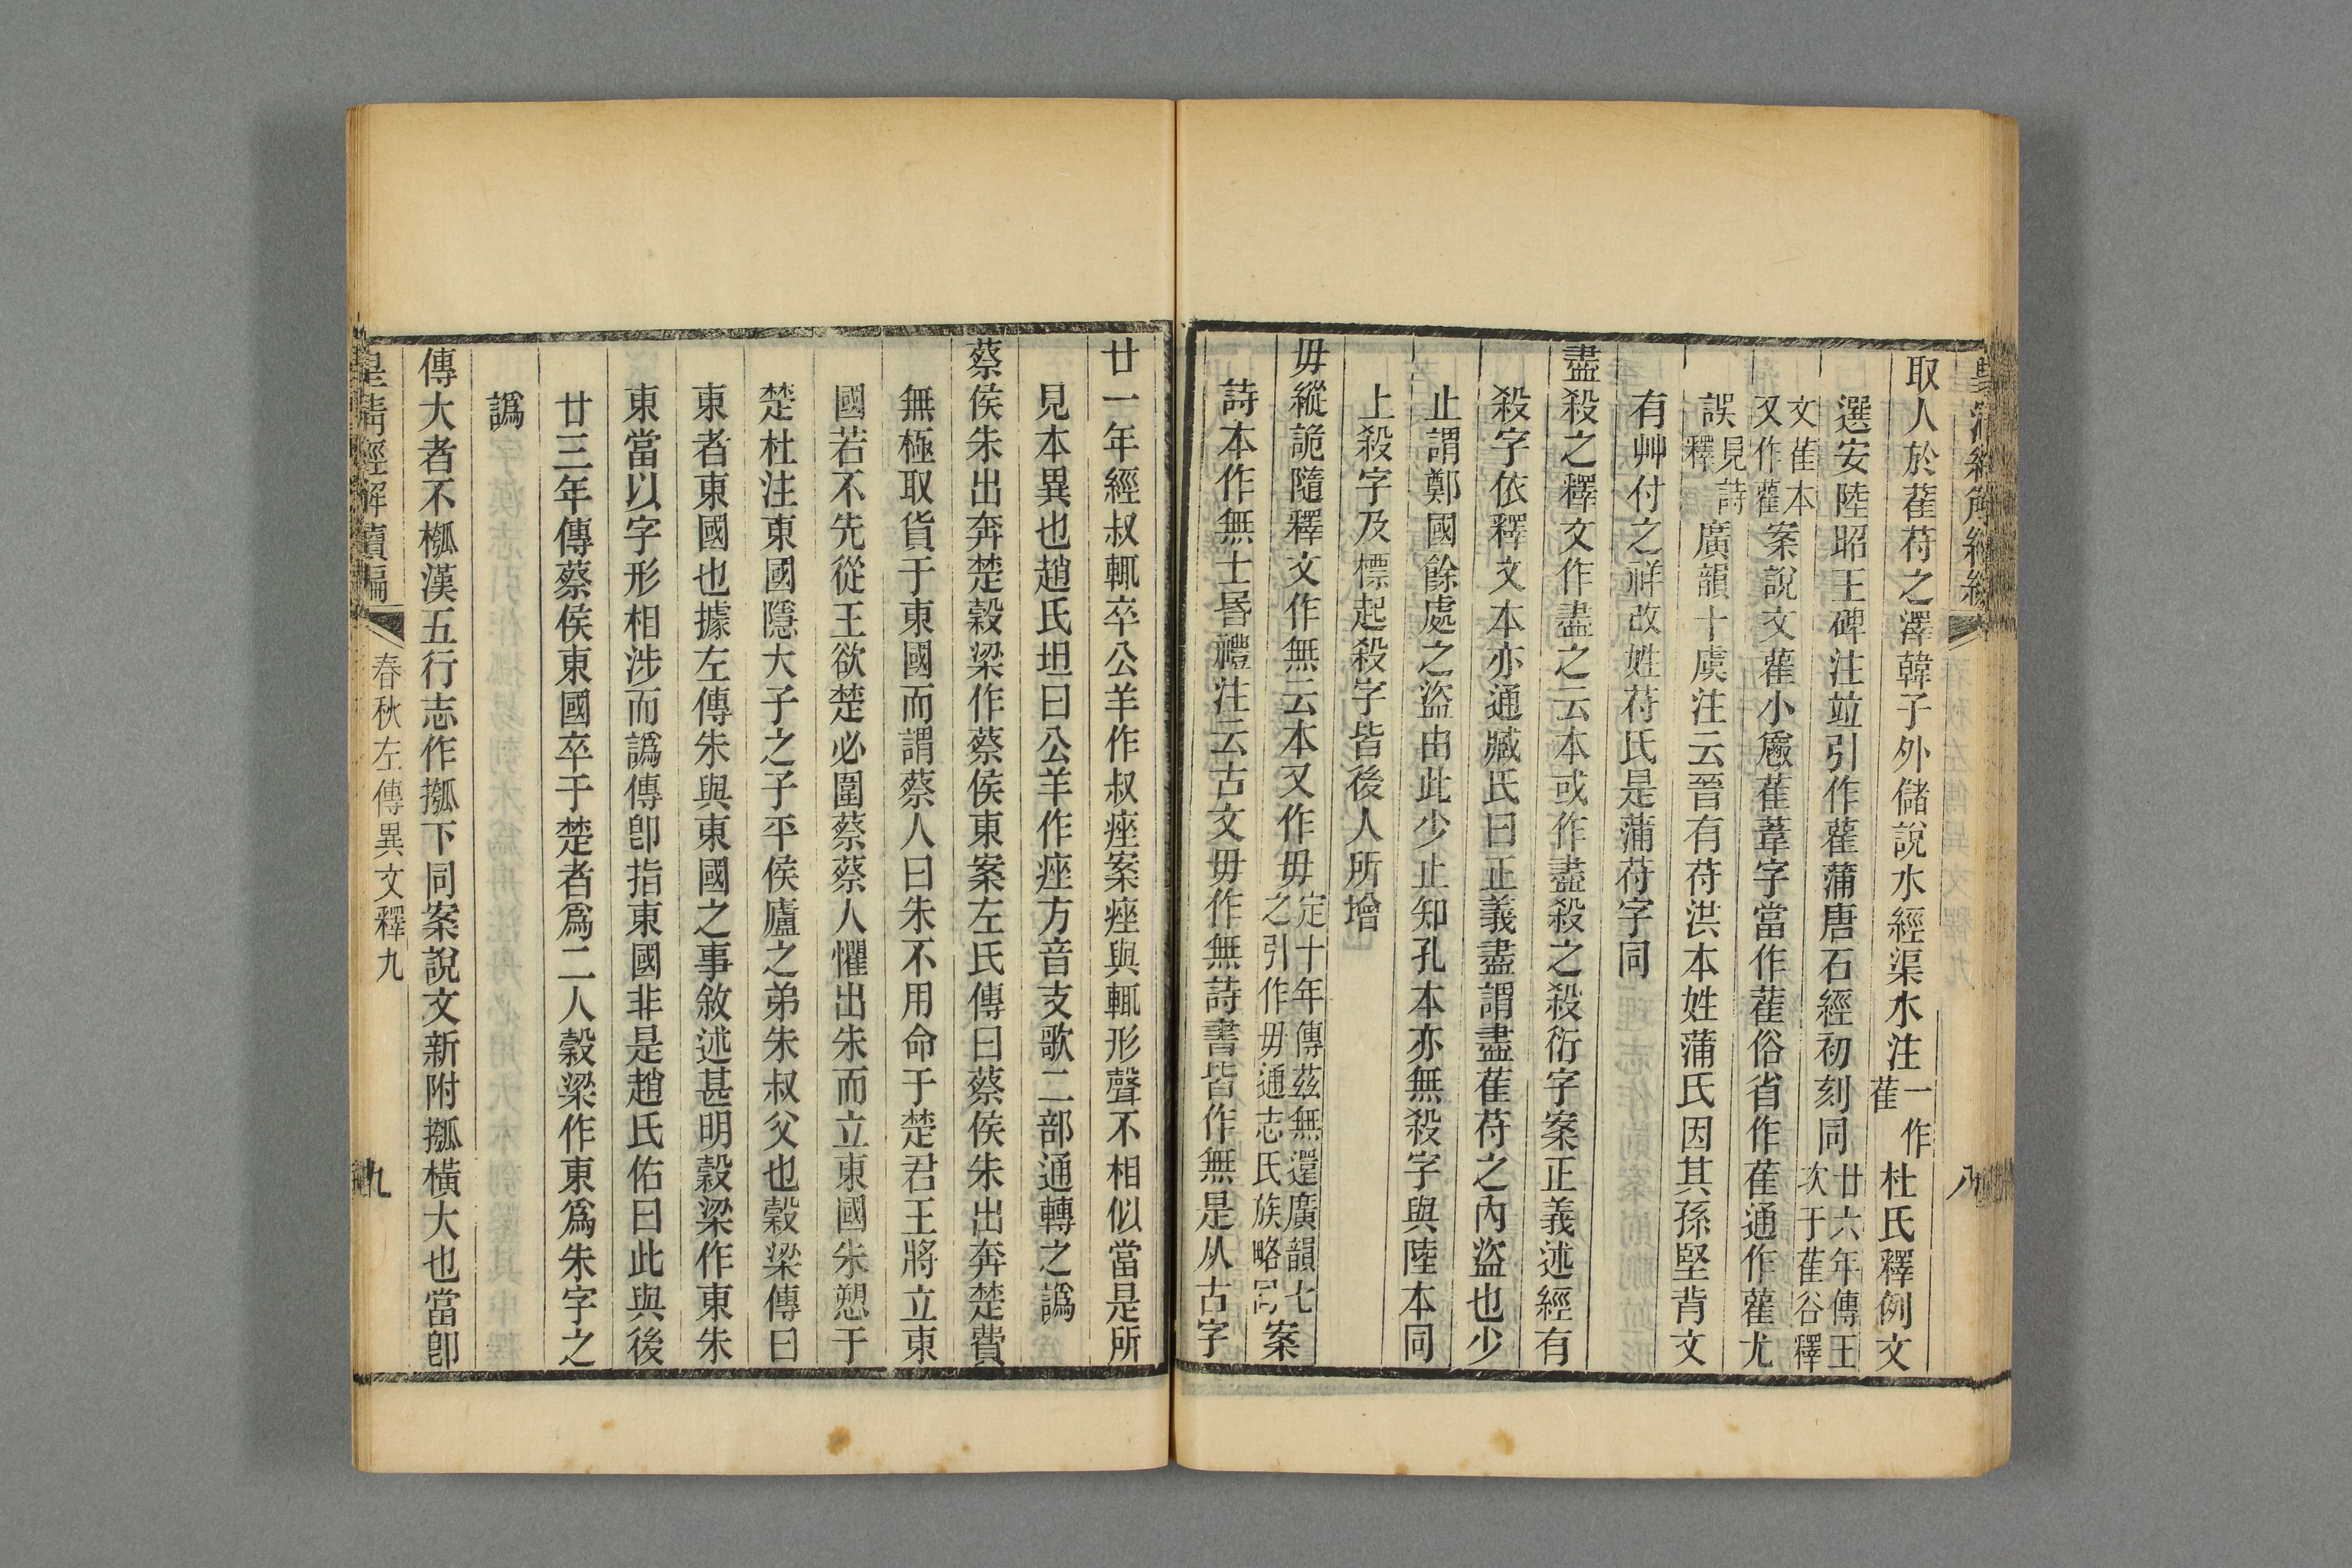 取人於萑苻之澤韓子外儲說水經渠水注一作萑杜氏釋例文
選安陸昭王碑注竝引作雚蒲唐石經初刻同廿六年傳王次于萑谷釋
文萑本又作雚案說文雚小爵萑葦字當作萑俗省作萑通作雚尤
誤見詩釋廣韻十虞注云晉有苻洪本姓蒲氏因其孫堅背文
有艸付之祥改姓苻氏是蒲苻字同
盡殺之釋文作盡之云本或作盡殺之殺衍字案正義述經有
殺字依釋文本亦通臧氏曰正義盡謂盡萑苻之內盜也少
止謂鄭國餘處之盜由此少止知孔本亦無殺字與陸本同
上殺字及標起殺字皆後人所增
毋縱詭隨釋文作無云本又作毋定十年傳茲無還廣韻七之引作毋通志氏族略同案
詩本作無士昏禮注云古文毋作無詩書皆作無是从古字
廿一年經叔輒卒公羊作叔痤案痤與輒形聲不相似當是所
見本異也趙氏坦曰公羊作痤方音支歌二部通轉之譌
蔡侯朱出奔楚穀梁作蔡侯東案左氏傳曰蔡侯朱出奔楚費
無極取貨于東國而謂蔡人曰朱不用命于楚君王將立東
國若不先從王欲楚必圍蔡蔡人懼出朱而立東國朱愬于
楚杜注東國隱大子之子平侯廬之弟朱叔父也穀梁傳曰
東者東國也據左傳朱與東國之事敘述甚明穀梁作東朱
東當以字形相涉而譌傳卽指東國非是趙氏佑曰此與後
廿三年傳蔡侯東國卒于楚者爲二人穀梁作東爲朱字之
譌
傳大者不槬漢五行志作摦下同案說文新附摦橫大也當卽
皇清經解續編
春秋左傳異文釋九
九